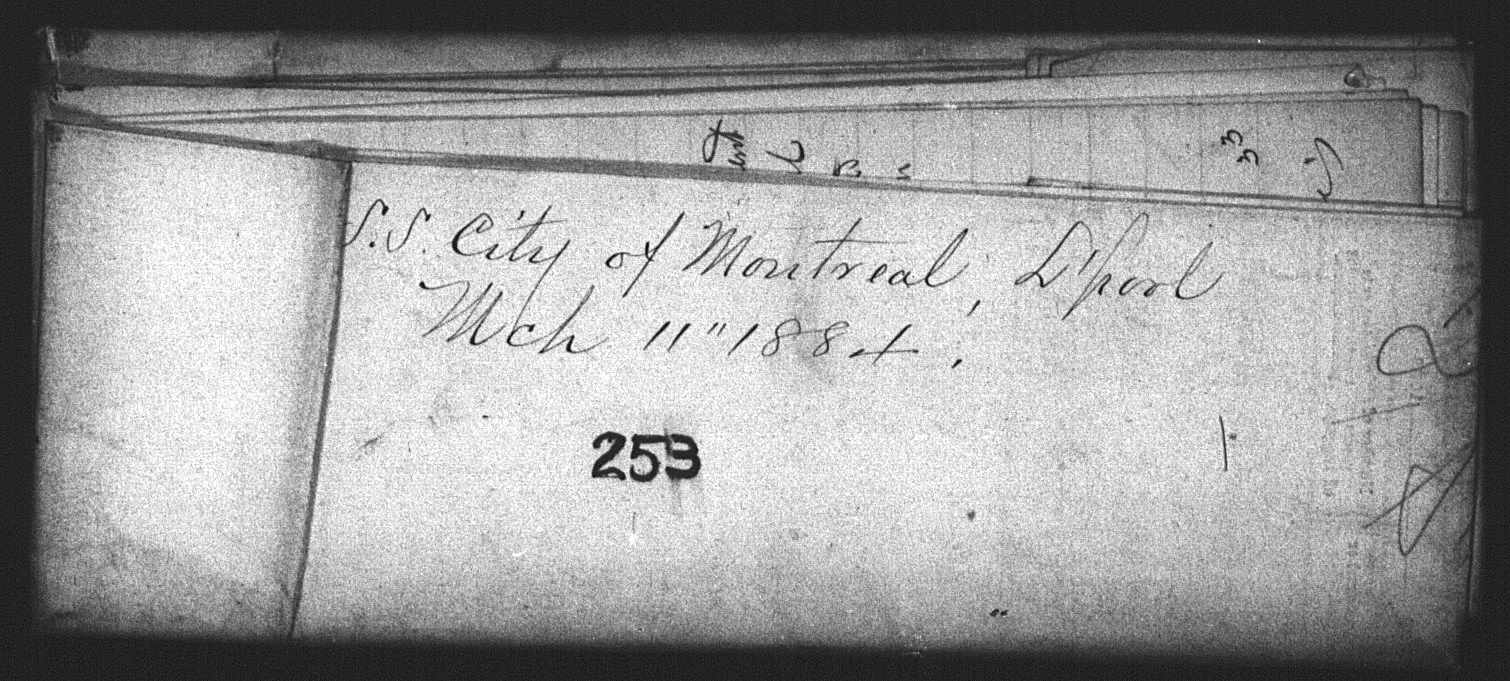 S.S. City of Montreal, L'pool
Mch 11" 1884.
253